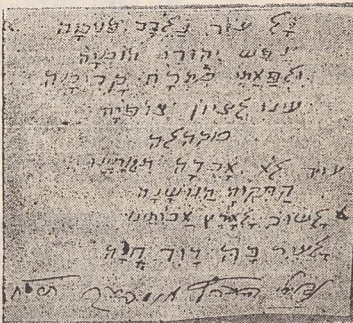 כָּל עוֹד בַּלֵּבָב פְּנִימָה
נֶפֶשׁ יְהוּדִי הוֹמִיָּה
וּלְפַאֲתֵי מִזְרָח קָדִימָה
עינו לציון צופיה
עוד לֹא אָבְדָה תִּקְוָתֵנוּ
הַתִּקְוָה הַנּוֹשָׁנָה
לָשׁוּב לְאֶרֶץ אֲבוֹתֵינוּ
לָעִיר בָּהּ דָּוִד חָנָה
נפתלי הערץ אימבר